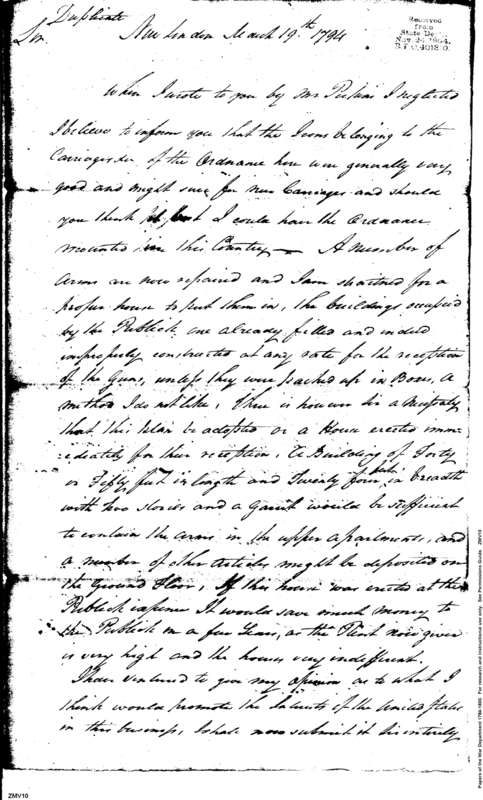 Duplicate
Sir
New London March 19th 1794
Received
from
State Dept.
Nov. 26 1904.
When I wrote to you by Mr Perkins I neglected
I believe to inform you that the Irons belonging to the
Carriages &c of the Ordnance here were generally very
good and might serve for new Carriages and should
you think it best I could have the Ordnance
mounted in this Country — A number of
arms are now repaired and I am straitned for a
proper house to put them in, the buildings occupied
by the Publick are already filled and indeed
improperly constructed at any rate for the reception
of the Guns, unless they were packed up in Boxes, a
method I do not like, there is however a necessity
that this plan be adopted or a House erected imm-
ediately for their reception, A Building of Forty
or Fifty feet in length and Twenty four feet in breadth
with two stories and a Garret would be sufficient
to contain the arms in the upper apartments, and
a number of other articles might be deposited on
the Ground Floor, If this house was erected at the
Publick expence it would save much money to
the Publick in a few Years, as the Rent now given
is very high and the houses very indifferent.
I have ventured to give my opinion as to what I
think would promote the Interests of the United States
in this business, I shall now submit it entirely
ZMV10
Papers of the War Department 1784-1800. For research and instructional use only. See Permissions Guide. ZMV10